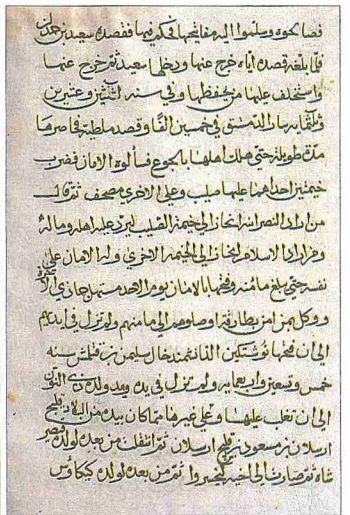 فصالحوه وسلموا اليه مفاتيحها فكر فيها فقصده سعيد بن حمدان
فلما بلغه قصده اياه خرج عنها ودخلها سعيد ثم خرج عنها
واستخلف عليها من يحفظها وفي سنه اثنتين وعشرين
وثلثمايه سار الدمستق في خمسين الفا وقصد ملطيه فحاصرها
مدة طويلة حتى هلك اهلها بالجوع فسألوه الامان فضرب
خيمتين احداهما عليها صليب وعلى الاخرى مصحف ثم قال
من اراد النصرانيه انحاز الى خيمة الصليب ليرد عليه اهله وماله
ومن اراد الاسلام انحاز الى الخيمه الاخرى وله الامان على
نفسه حتى يبلغ مامنه وفتحها بالامان يوم الاحد مستهل جمادى الآخرة
ووكل بهم من بطارقته اوصلوهم الى مامنهم ولم تزل في ايديهم
الى ان فتحها نوشتكين الدانشمند خال سليمن بن قتلمش سنه
خمس وتسعين واربعمايه ولم تزل في يده ويد ولده ذي النون
الى ان تغلب عليها وعلى غيرها مما كان بيده من البلاد قليج
ارسلان بن مسعود بن قليج ارسلان ثم انتقلت من بعده لولده قيصر
شاه ثم صارت الى اخيه كيخسروا ثم من بعده لولده كيكاوس